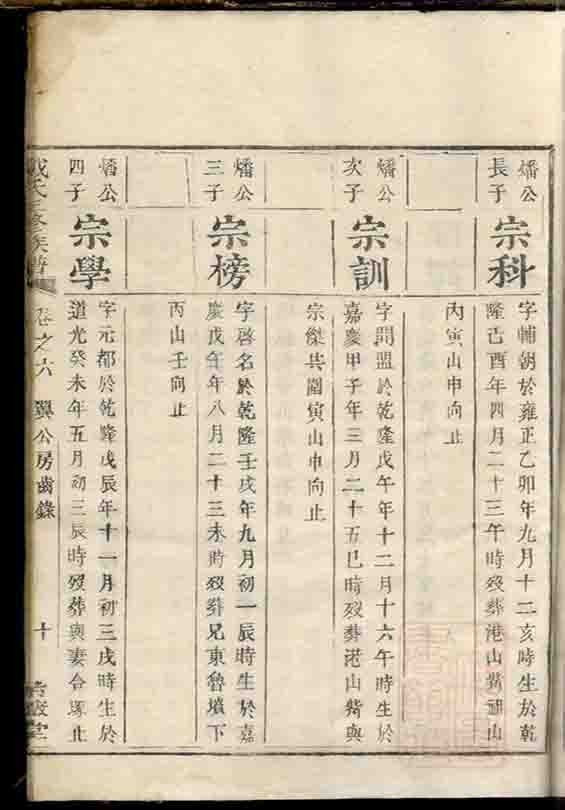 燔公
長子
宗科
字輔朝於雍正乙卯年九月十二亥時生於乾
隆己酉年四月二十三午時歿葬港山觜祖山
內寅山申向止
燔公
次子
宗訓
字開盟於乾隆戊午年十二月十六午時生於
嘉慶甲子年三月二十五巳時歿葬港山觜與
宗傑共圍寅山申向止
燔公
三子
宗榜
字啓名於乾隆壬戌年九月初一辰時生於嘉
慶戊午年八月二十三未時歿葬兄東魯墳下
丙山壬向止
燔公
四子
宗學
字元都於乾隆戊辰年十一月初三戌時生於
道光癸未年五月初三辰時歿葬與妻合塚止
氏三修族譜
卷之六
翼公房齒錄
十